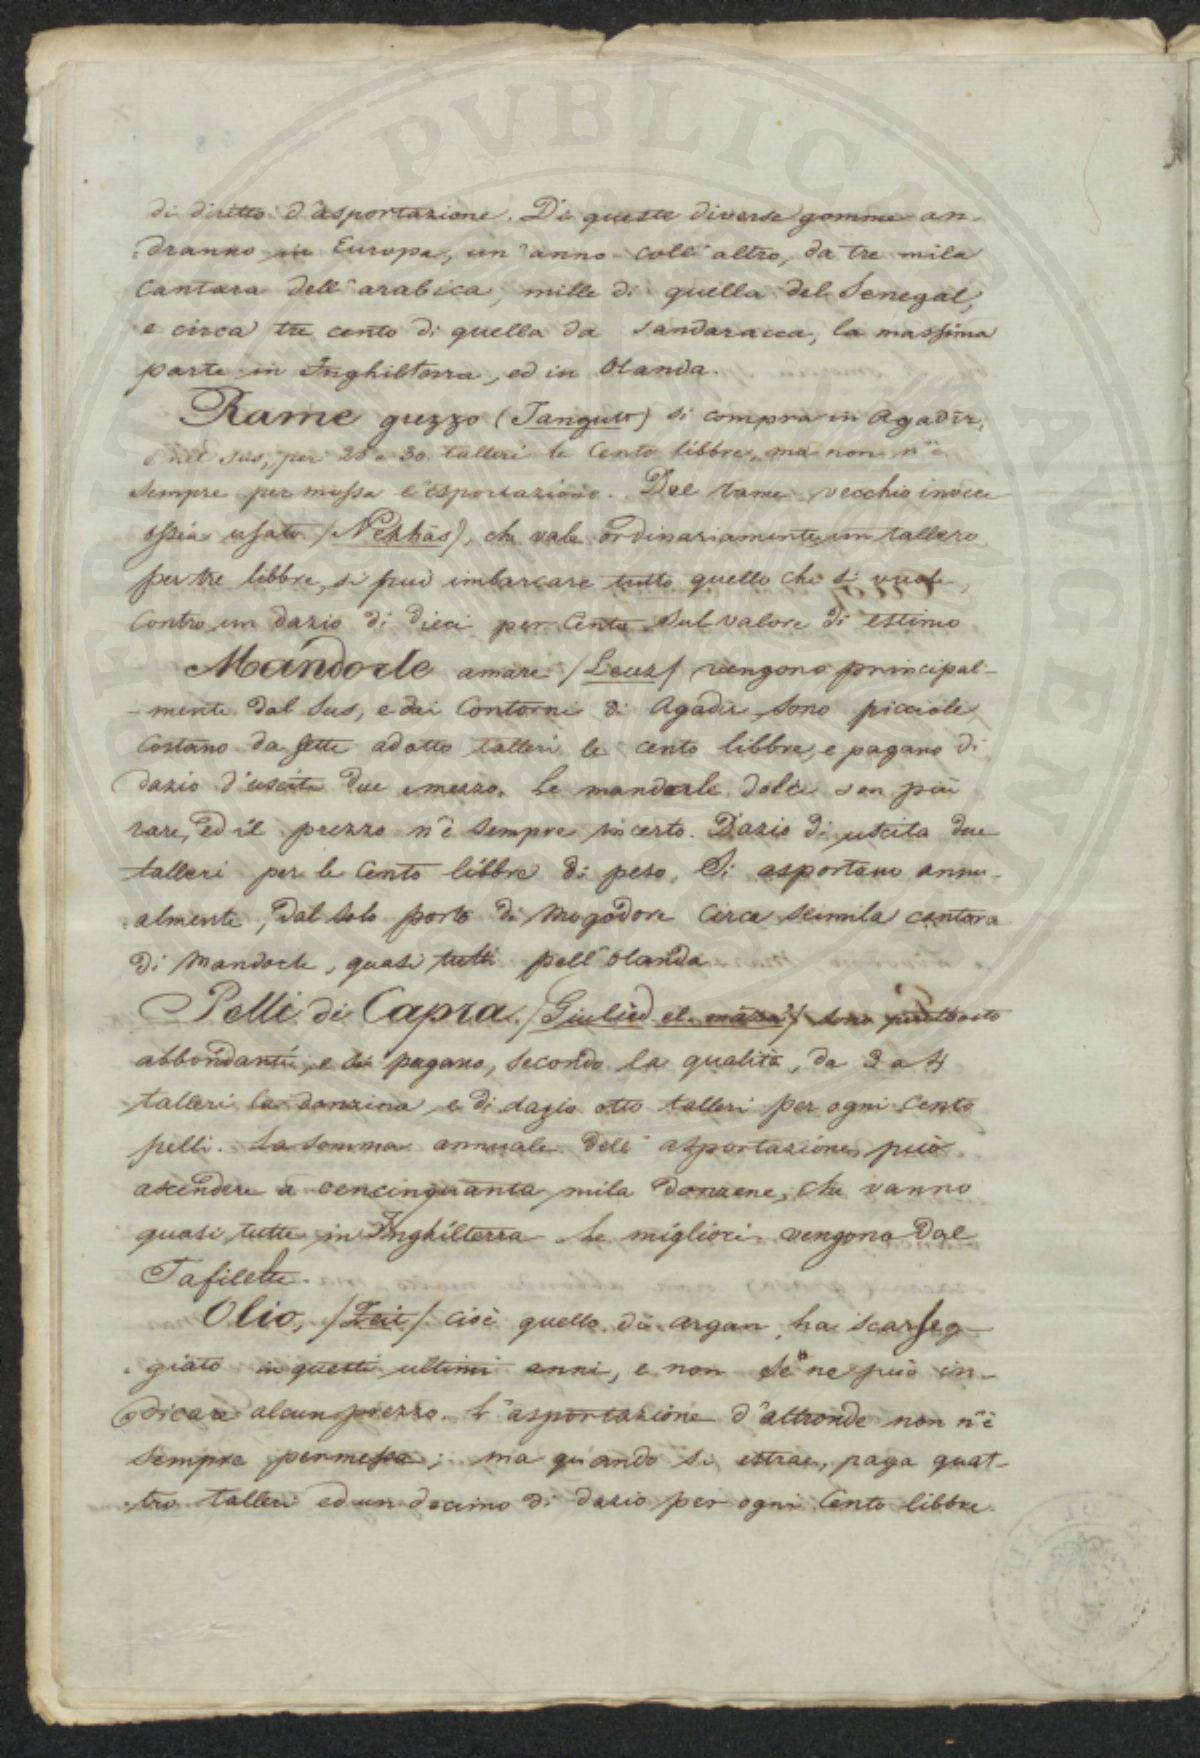 di diritto d'asportazione. Di queste diverse gomme an-
:dranno in Europa, un'anno coll'altro, da tre mila
Cantara dell'arabica, mille di quella del Senegal,
e circa tre cento di quella da Sandaracca, la massima
parte in Inghilterra, ed in Olanda.
Rame grezzo (Tangult) si compra in Agadir,
e nel Sus, per 25 a 30 talleri le Cento libbre, ma non n'è
sempre permessa l'esportazione. Del rame vecchio invece
ossia usato /Nekhàs/, che vale ordinariamente un tallero
per tre libbre, si può imbarcare tutto quello che si vuole,
contro un dazio di dieci per Cento sul valore di estimo
Màndorle amare /Leuz/ vengono principal-
-mente dal Sus, e dai Contorni di Agadir sono picciole
Costano da sette ad otto talleri le cento libbre, e pagano di
dazio d'uscita due e mezzo. Le mandorle dolci son più
rare, ed il prezzo n'è sempre incerto. Dazio di uscita due
talleri per le Cento libbre di peso. Si asportano annu-
:almente, dal solo porto di Mogodore Circa seimila cantara
di Mandorle, quasi tutti pell'Olanda
Pelli di Capra. /Giulúd el-màza'/ sono piuttosto
abbondanti, e si pagano, secondo la qualità, da 3 a 4
talleri la donzina e di dazio otto talleri per ogni Cento
pelli. La somma annuale dell'asportazione può
ascendere a cencinquanta mila donzene, che vanno
quasi tutte in Inghilterra Le migliori vengono dal
Tafilelte.
Olio, /Zeit/ cioè quello di argan, ha scarseg-
:giato in questi ultimi anni, e non se ne può in-
dicare alcun prezzo. L'asportazione d'altronde non n'è
sempre permessa; ma quando si estrae, paga quat-
:tro talleri ed un decimo di dazio per ogni Cento libbre.